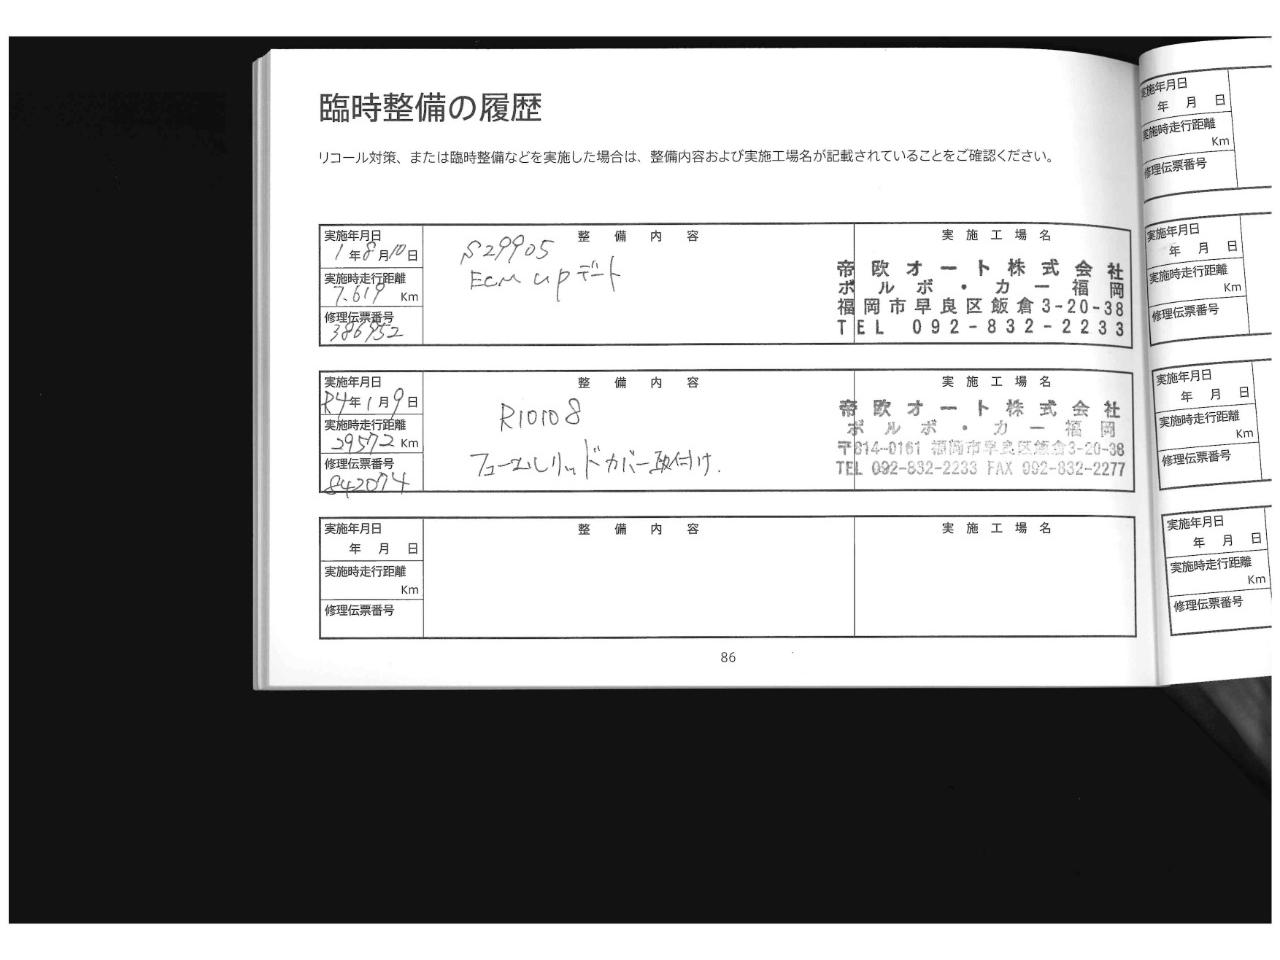 臨時整備の履歴
リコール対策、または臨時整備などを実施した場合は、整備内容および実施工場名が記載されていることをご確認ください。
実施年月日
1年8月10日
実施時走行距離
7,619 Km
修理伝票番号
386952
整備内容
S29905
ECM upデート
実施工場名
帝欧オート株式会社
ボルボ・カー福岡
福岡市早良区飯倉3-20-38
TEL 092-832-2233
実施年月日
R4年1月9日
実施時走行距離
29572 Km
修理伝票番号
842074
整備内容
R10108
フューエルリッドカバー取付け.
実施工場名
帝欧オート株式会社
ボルボ・カー福岡
〒814-0161 福岡市早良区飯倉3-20-38
TEL 092-832-2233 FAX 092-832-2277
実施年月日
年 月 日
実施時走行距離
Km
修理伝票番号
整備内容
実施工場名
86
実施年月日
年 月 日
実施時走行距離
Km
修理伝票番号
実施年月日
年 月 日
実施時走行距離
Km
修理伝票番号
実施年月日
年 月 日
実施時走行距離
Km
修理伝票番号
実施年月日
年 月 日
実施時走行距離
Km
修理伝票番号